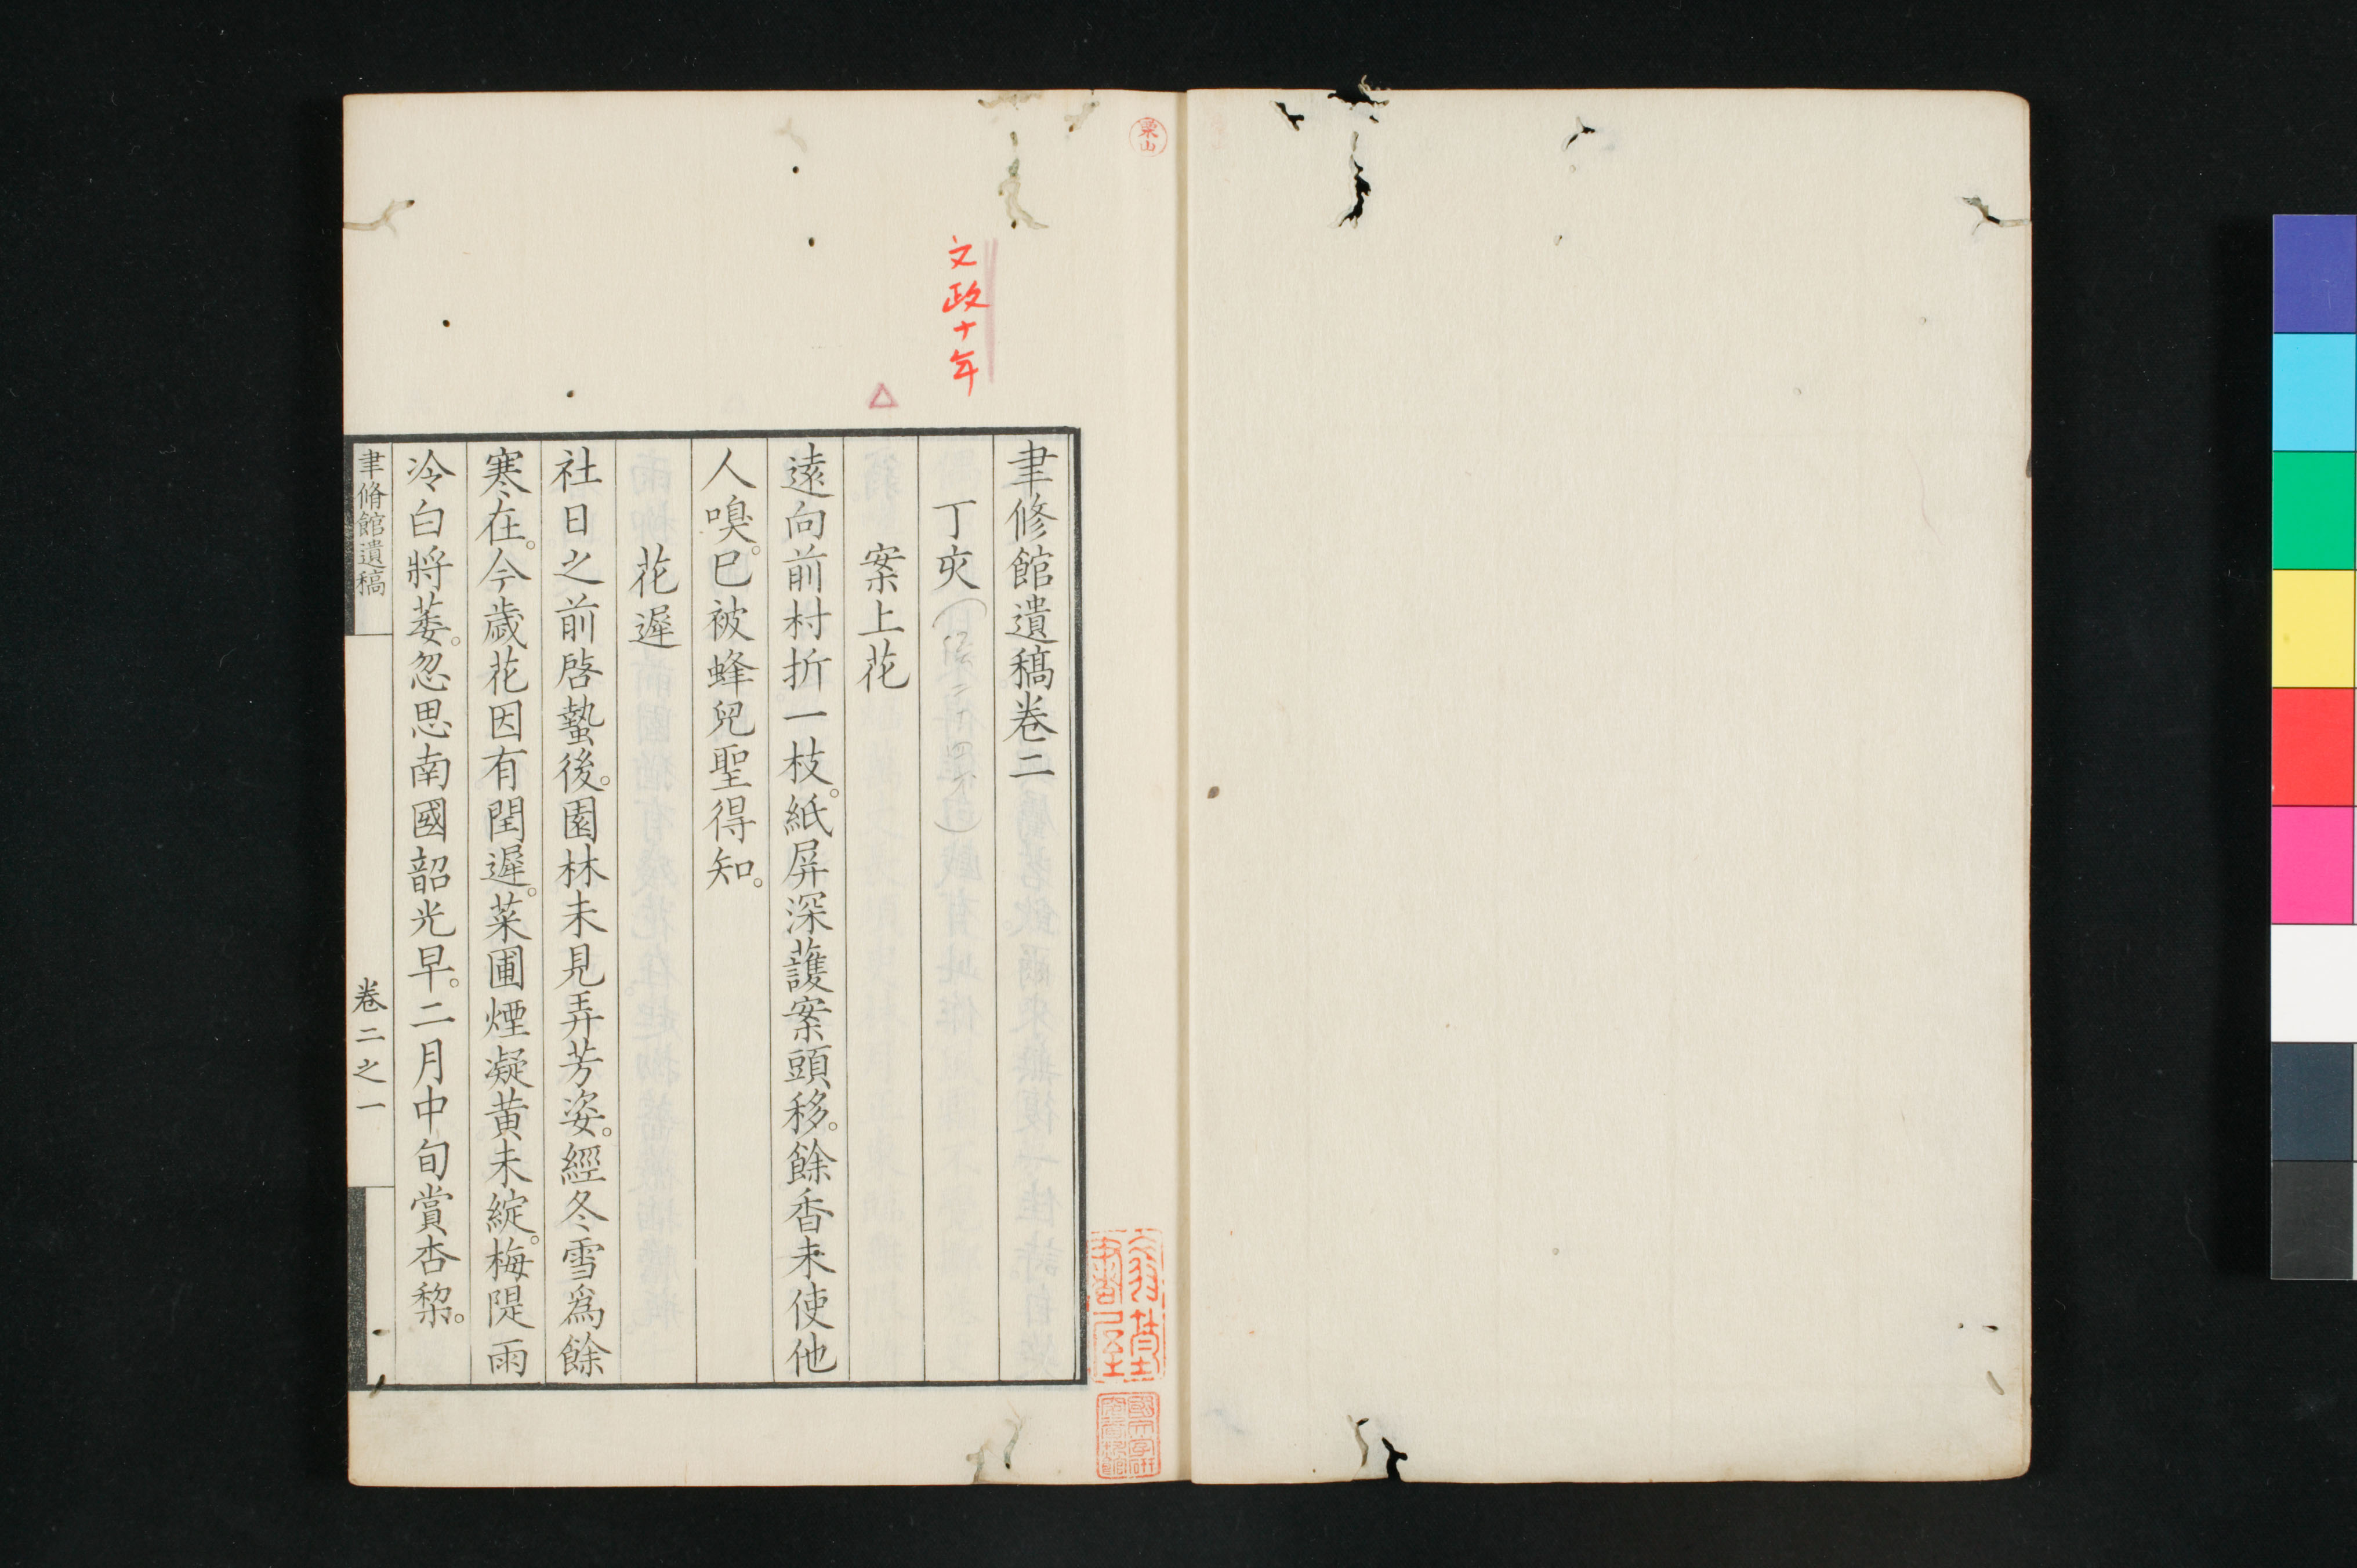 聿修館遺稿卷二
丁亥
文政十年
案上花
遠向前村折一枝。紙屏深護案頭移。餘香未使他
人嗅。已被蜂兒聖得知。
花遲
社日之前啓蟄後。園林未見弄芳姿。經冬雪爲餘
寒在。今歳花因有閏遲。菜圃煙凝黃未綻。梅隄雨
冷白將萎。忽思南國韶光早。二月中旬賞杏棃。
聿脩館遺稿
卷二之一
栗山